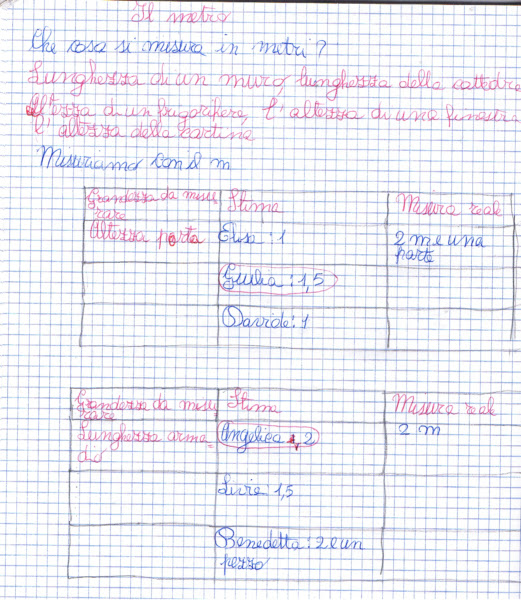 Il metro
Che cosa si misura in metri?
Lunghezza di un muro, lunghezza della cattedra
Altezza di un frigorifero, l'altezza di una finestra
l'altezza della cartina
Misuriamo con il m
Grandezza da misu Stima Misura reale
rare
Altezza porta Elisa: 1 2 m e una
parte
Giulia: 1,5
Davide: 1
Grandezza da misu Stima Misura reale
rare
Lunghezza arma- Angelica 1, 2 2 m
dio
Livie: 1,5
Benedetta: 2 e un
pezzo